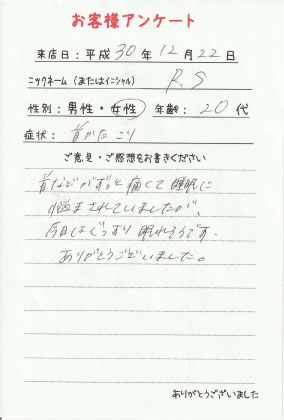 お客様アンケート
来店日：平成 30 年 12 月 22 日
ニックネーム（またはイニシャル） R.S
性別：男性・女性 年齢：20 代
症状： 首かた こり
ご意見・ご感想をお書きください
首などがずっと痛くて睡眠に
悩まされていましたが、
今日はぐっすり眠れそうです。
ありがとうございました。
ありがとうございました